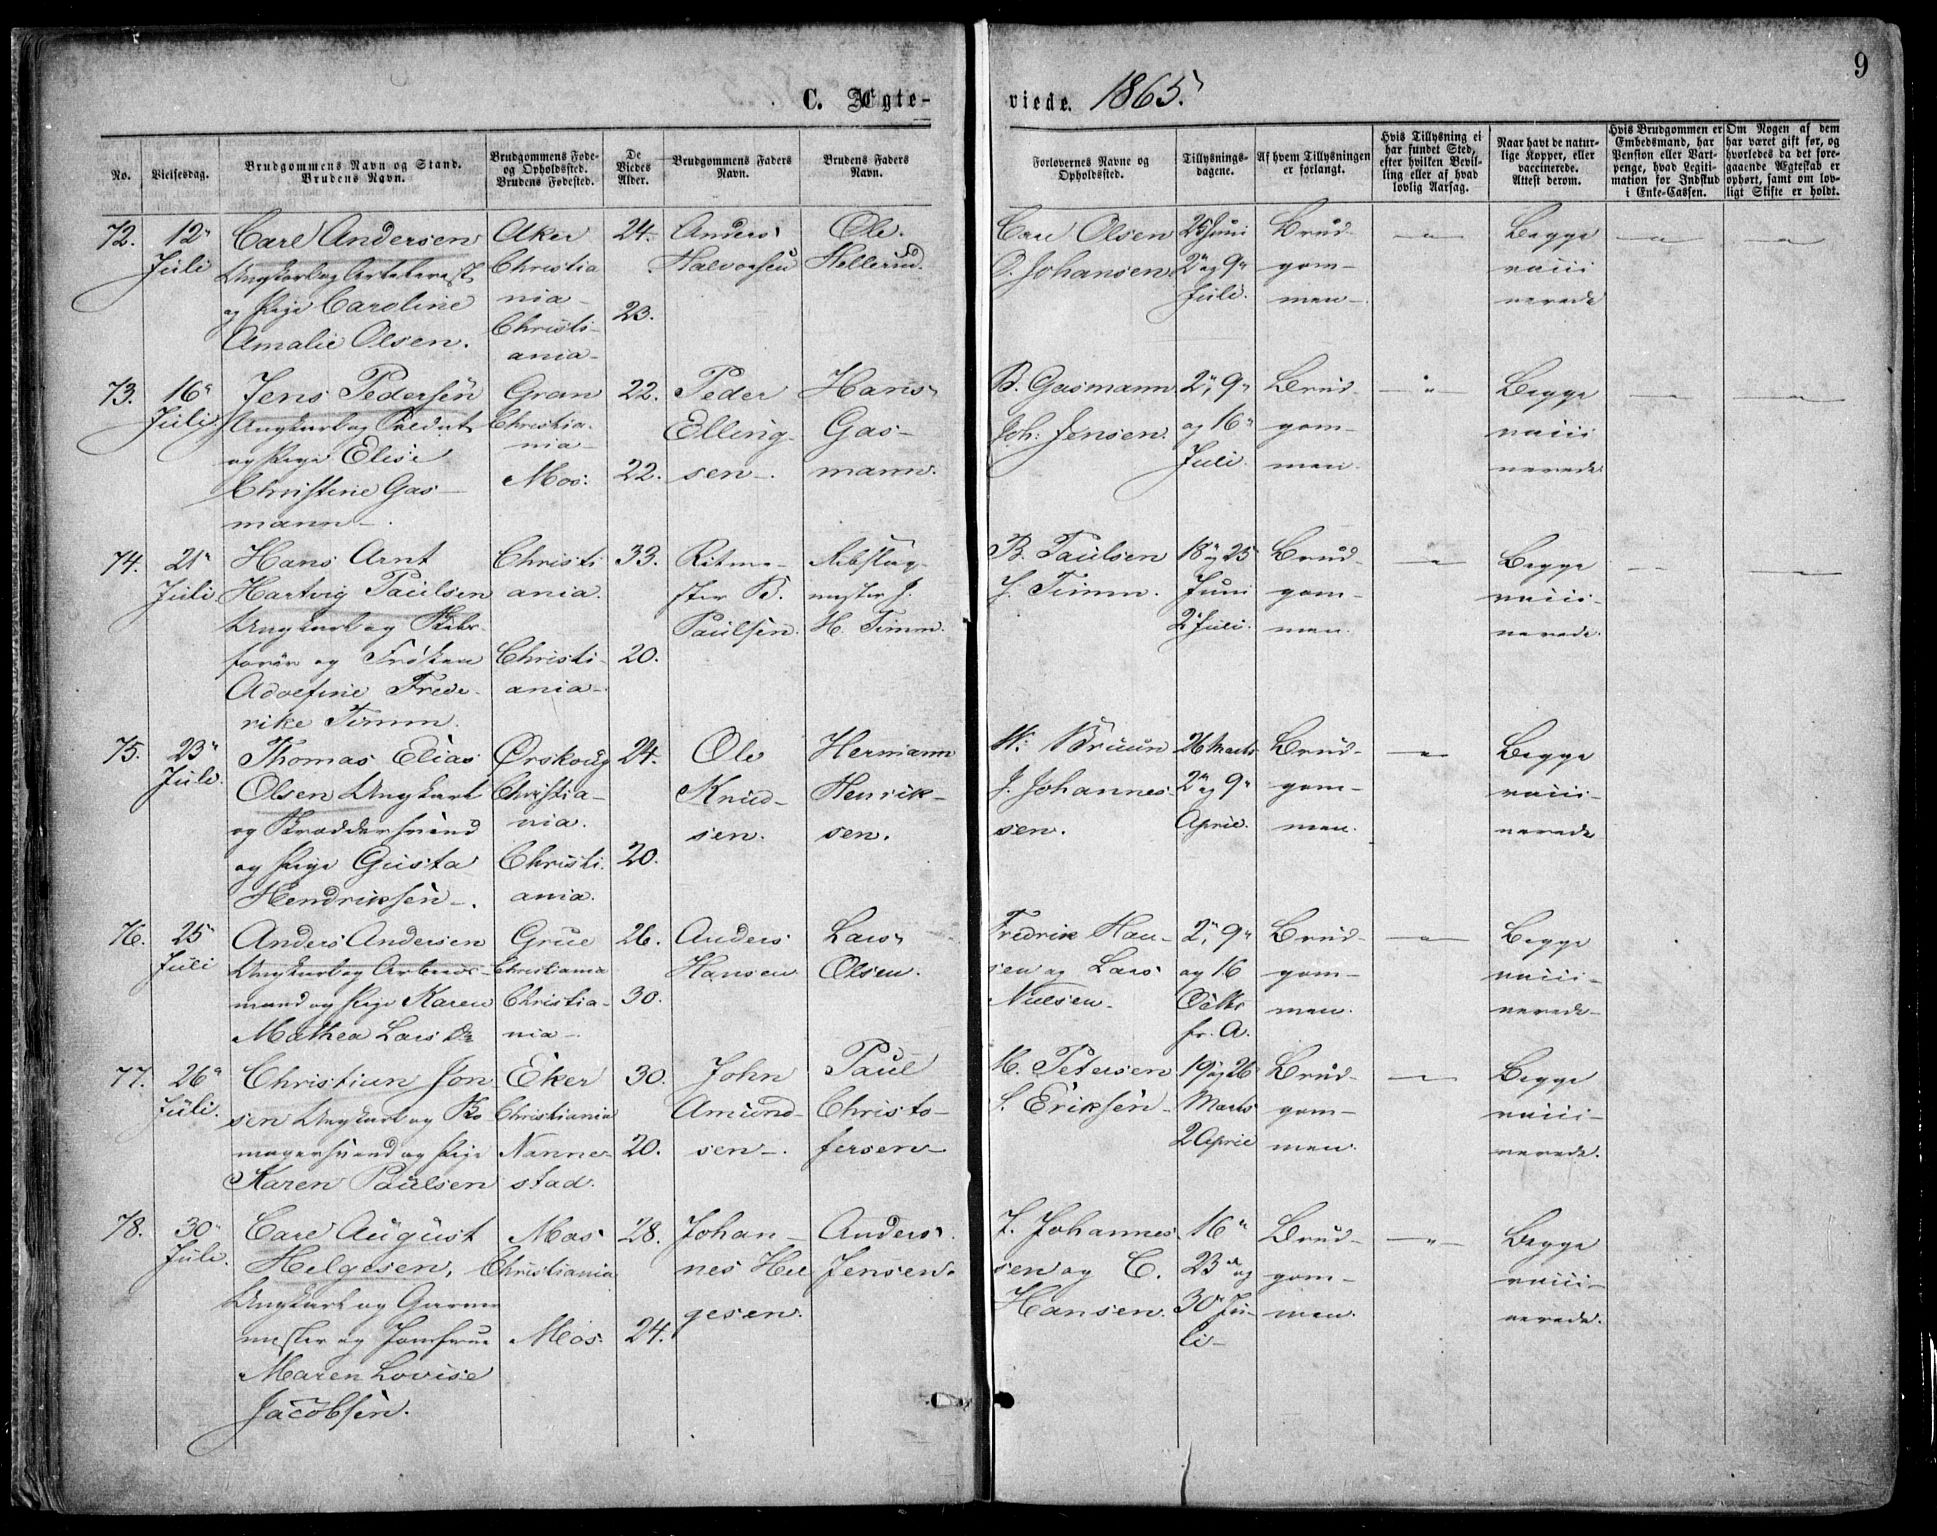 9
C. Ægte-
viede. 1865.
No.
Vielsesdag.
Brudgommens Navn og Stand.
Brudens Navn.
Brudgommens Føde-
og Opholdssted.
Brudens Fødested.
De
Viedes
Alder.
Brudgommens Faders
Navn.
Brudens Faders
Navn.
Forlovernes Navne og
Opholdssted.
Tillysnings-
dagene.
Af hvem Tillysningen
er forlangt.
Hvis Tillysning ei
har fundet Sted,
efter hvilken Bevil-
ling eller af hvad
lovlig Aarsag.
Naar havt de natur-
lige Kopper, eller
vaccinerede.
Attest derom.
Hvis Brudgommen er
Embedsmand, har
Pension eller Vart-
penge, hvad Legiti-
mation for Indskud
i Enke-Cassen.
Om Nogen af dem
har været gift før, og
hvorledes da det fore-
gaaende Ægteskab er
ophørt, samt om lov-
ligt Skifte er holdt.
72.
12"
Juli
Carl Andersen
Ungkarl og
og Pige Caroline
Amalie Olsen.
Aker
Christia
nia-
Christi-
ania-
24.
23.
Anders
Halvorsen
Ole
Hellerud.
Carl Olsen
O. Johansen.
25 Juni
2" og 9"
Juli.
Brud-
gom-
men-
Begge
vacci
nerede
73.
16"
Juli.
Jens Pedersen
Ungkarl og Soldat
og Pige Elise
Christine Gas-
mann-.
Gran
Christia-
nia-
Mos.
22.
22.
Peder
Elling-
sen-.
Hans
Gas-
mann.
B. Gasmann
Joh: Jensen.
2", 9"
og 16"
Juli.
Brud-
gom-
men.
Begge
vacci
nerede
74.
21"
Juli
Hans Arnt
Hartvig Paulsen
Ungkarl og
og Frøken
Adolfine Frede-
rike Timm.
Christi
ania.
Christi-
ania-
33.
20.
Ritme-
ster B.
Paulsen.
Rebslag-
mester J.
H. Timm.
B. Paulsen
J. Timm.
18" og 25"
Juni
2" Juli.
Brud-
gom-
men.
Begge
vacci-
nerede.
75.
23"
Juli.
Thomas Elias
Olsen Ungkarl
og
og Pige Gusta
Hendriksen-.
Ørskoug
Christia-
nia.
Christi.
ania.
24.
20.
Ole
Knud-
sen.
Hermann
Henrik-
sen.
W. Bruun
J. Johannes-
sen.
26 Marts
2" og 9"
April.
Brud-
gom-
men.
Begge
vacci-
nerede
76.
25"
Juli
Anders Andersen
Ungkarl og Arbeids-
mand og Pige Karen
Mathea Lars Dr.
Grue
Christiania
Christia-
nia-
26.
30.
Anders
Hansen
Lars
Olsen.
Fredrik Han-
sen og Lars
Nielsen-
2", 9"
og 16
Octbr
fr. A.
Brud-
gom-
men.
Begge
vacci-
nerede-
77.
26"
Juli.
Christian Jon
sen Ungkarl og Sko
magersvend og Pige
Karen Paulsen
Eker
Christiania
Nanne-
stad.
30.
20.
John
Amund-
sen-.
Paul
Christo-
fersen-
M. Petersen
S. Eriksen-
19 og 26
Marts
2 April
Brud-
gom-
men.
Begge
vacci-
nerede.
78.
30"
Juli.
Carl August
Helgesen,
Ungkarl og Garver
mester og Jomfrue
Maren Lovise
Jacobsen.
Mos
Christiania
Mos.
28.
24.
Johan-
nes Hel
gesen.
Anders
Jensen.
J. Johannes-
sen og C.
Hansen.
16"
23" og
30" Ju-
li-
Brud-
gom-
men.
Begge
vacci-
nerede.